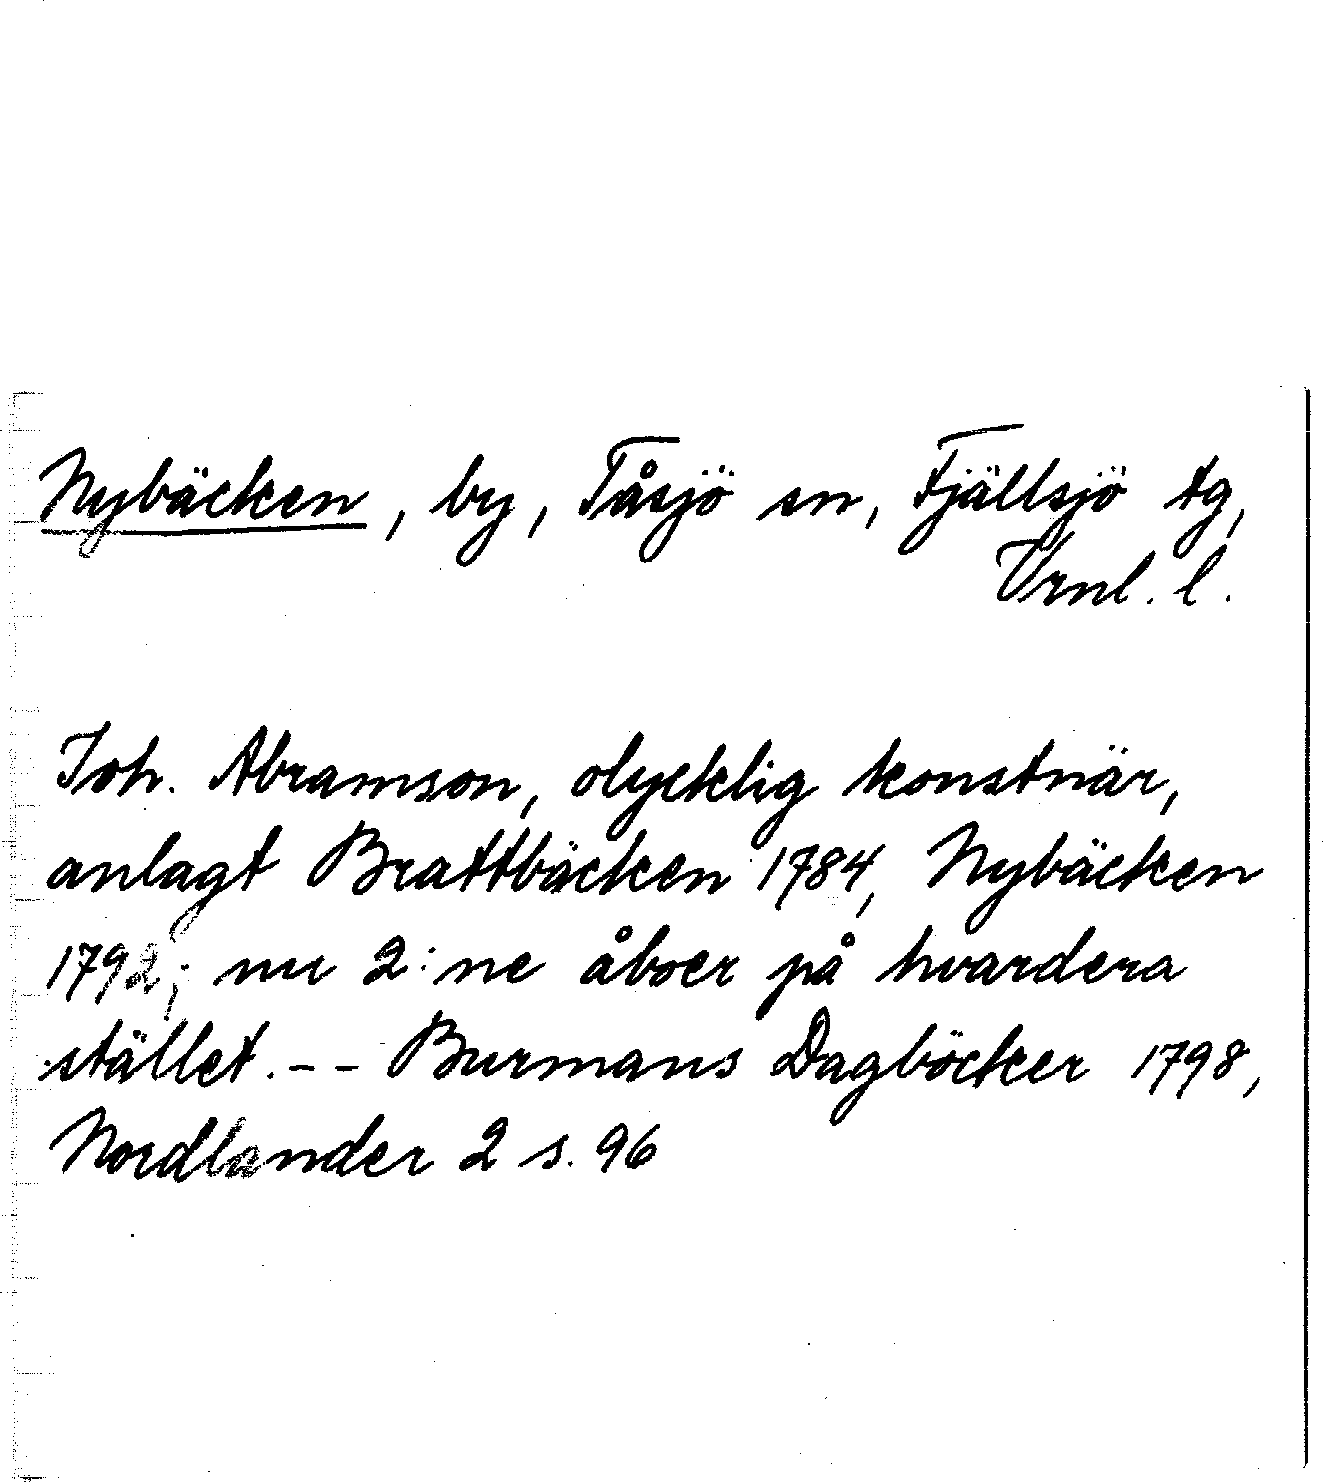 Nybäcken, by, Tåsjö sn, Fjällsjö tg,
Vrnl. l.
Joh. Abramson, olycklig konstnär,
anlagt Brattbäcken 1784, Nybäcken
1792; nu 2:ne åboer på hvardera
stället. - - Burmans Dagböcker 1798,
Nordlander 2 s. 96